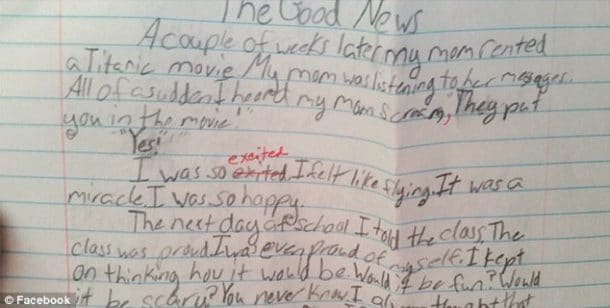 The Good News
A couple of weeks later my mom rented
a Titanic movie My mom was listening to her mesages.
All of a sudden I heard my mom scream, "They put
you in the movie!"
"Yes!"
excited
I was so exited. I felt like flying. It was a
miracle. I was so happy.
The next day at school I told the class. The
class was proud. I was even proud of myself. I kept
on thinking how it would be. Would it be fun? Would
it be scary? You never know. I
Facebook